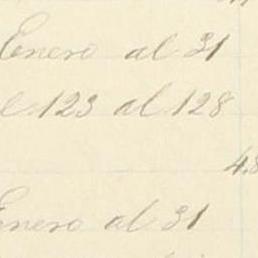 Enero al 31
123 al 128
4.8
Enero al 31